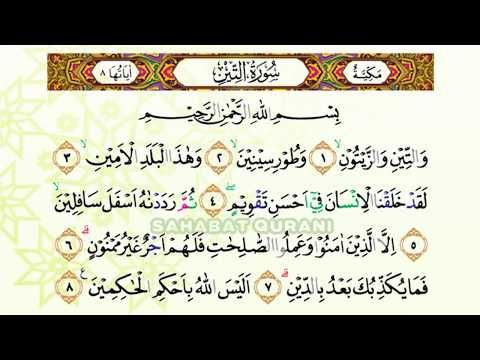 مكية سورة التين اياتها ٨
بِسْمِ اللّٰهِ الرَّحْمٰنِ الرَّحِيْمِ
وَالتِّيْنِ وَالزَّيْتُوْنِۙ ١ وَطُوْرِ سِيْنِيْنَۙ ٢ وَهٰذَا الْبَلَدِ الْاَمِيْنِۙ ٣
لَقَدْ خَلَقْنَا الْاِنْسَانَ فِيْٓ اَحْسَنِ تَقْوِيْمٍۖ ٤ ثُمَّ رَدَدْنٰهُ اَسْفَلَ سَافِلِيْنَۙ
SAHABAT QURANI
٥ اِلَّا الَّذِيْنَ اٰمَنُوْا وَعَمِلُوا الصّٰلِحٰتِ فَلَهُمْ اَجْرٌ غَيْرُ مَمْنُوْنٍۗ ٦
فَمَا يُكَذِّبُكَ بَعْدُ بِالدِّيْنِۗ ٧ اَلَيْسَ اللّٰهُ بِاَحْكَمِ الْحٰكِمِيْنَ ࣖ ٨